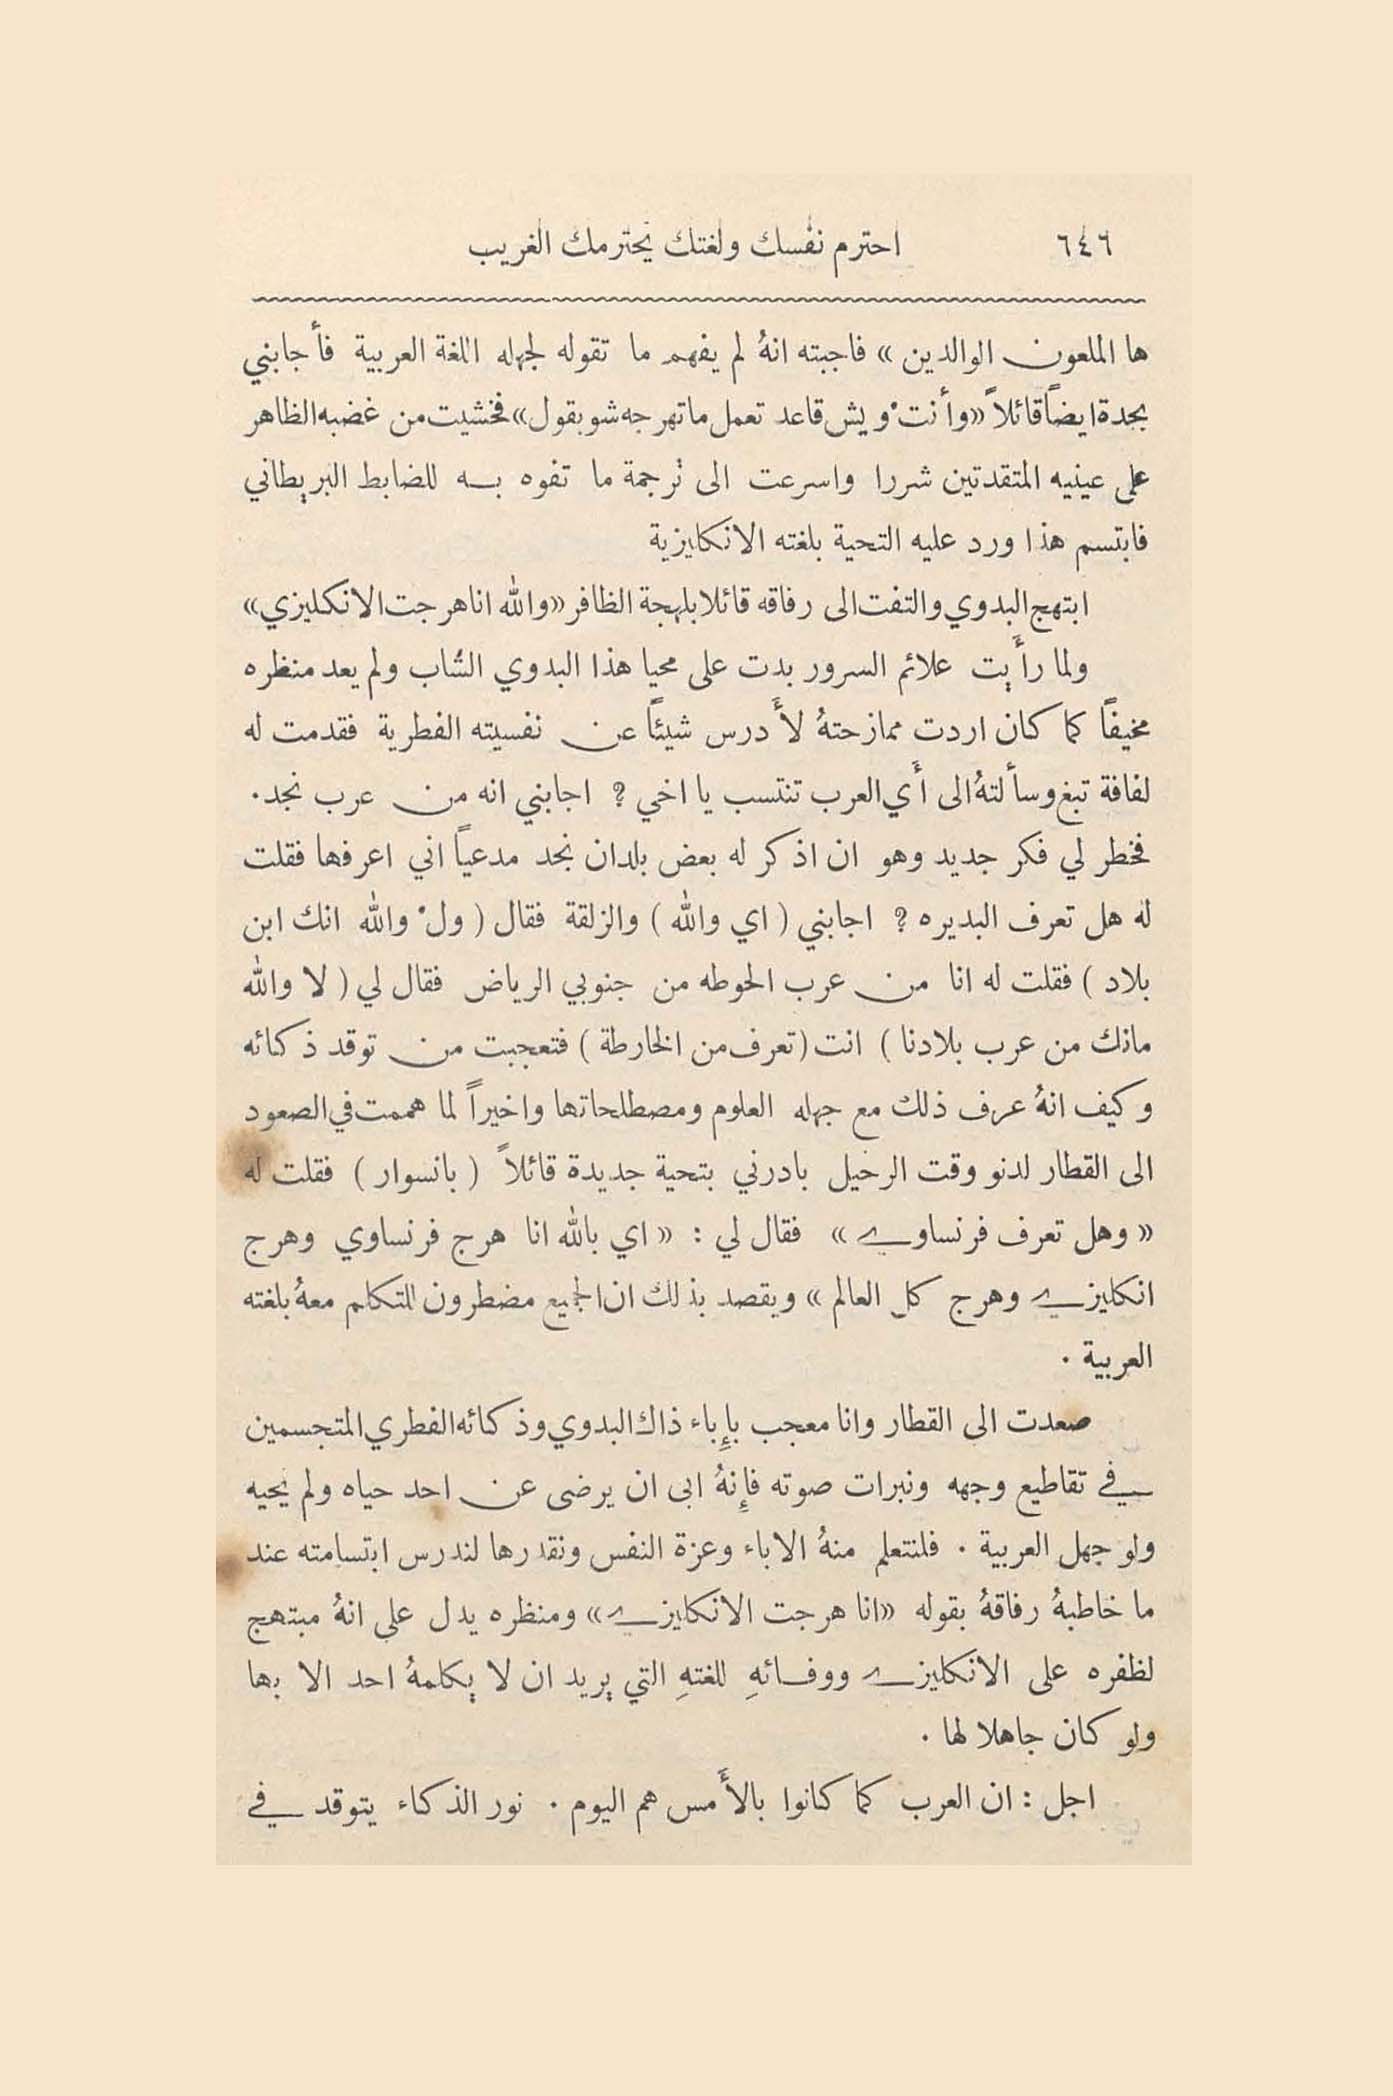 ٦٤٦ احترم نفسك ولغتك يحترمك الغريب
ها الملعون الوالدين » فاجبته انهُ لم يفهم ما تقوله لجهله اللغة العربية فأجابني
بحدة ايضاً قائلاً «وأنتْ ويش قاعد تعمل ما تهرجه شو بقول» فخشيت من غضبه الظاهر
على عينيه المتقدتين شررا واسرعت الى ترجمة ما تفوه به للضابط البريطاني
فابتسم هذا ورد عليه التحية بلغته الانكليزية
ابتهج البدوي والتفت الى رفاقه قائلا بلهجة الظافر «والله انا هرجت الانكليزي»
ولما رأَيت علائم السرور بدت على محيا هذا البدوي الشاب ولم يعد منظره
مخيفاً كما كان اردت ممازحتهُ لأَدرس شيئاً عن نفسيته الفطرية فقدمت له
لفافة تبغ وسألتهُ الى أَي العرب تنتسب يا اخي ؟ اجابني انه من عرب نجد .
فخطر لي فكر جديد وهو ان اذكر له بعض بلدان نجد مدعياً اني اعرفها فقلت
له هل تعرف البديره ؟ اجابني ( اي والله ) والزلقة فقال ( ولْ والله انك ابن
بلاد ) فقلت له انا من عرب الحوطه من جنوبي الرياض فقال لي ( لا والله
مانك من عرب بلادنا ) انت ( تعرف من الخارطة ) فتعجبت من توقد ذكائه
وكيف انهُ عرف ذلك مع جهله العلوم ومصطلحاتها واخيراً لما هممت في الصعود
الى القطار لدنو وقت الرحيل بادرني بتحية جديدة قائلاً ( بانسوار ) فقلت له
« وهل تعرف فرنساوي » فقال لي : « اي بالله انا هرج فرنساوي وهرج
انكليزي وهرج كل العالم » ويقصد بذلك ان الجميع مضطرون للتكلم معهُ بلغته
العربية .
صعدت الى القطار وانا معجب بإِباء ذاك البدوي وذكائه الفطري المتجسمين
في تقاطيع وجهه ونبرات صوته فإِنهُ ابى ان يرضى عن احد حياه ولم يحيه
ولو جهل العربية . فلنتعلم منهُ الاباء وعزة النفس ونقدرها لندرس ابتسامته عند
ما خاطبهُ رفاقهُ بقوله «انا هرجت الانكليزي» ومنظره يدل على انهُ مبتهج
لظفره على الانكليزي ووفائهِ للغتهِ التي يريد ان لا يكلمهُ احد الا بها
ولو كان جاهلا لها .
اجل : ان العرب كما كانوا بالأَمس هم اليوم . نور الذكاء يتوقد في